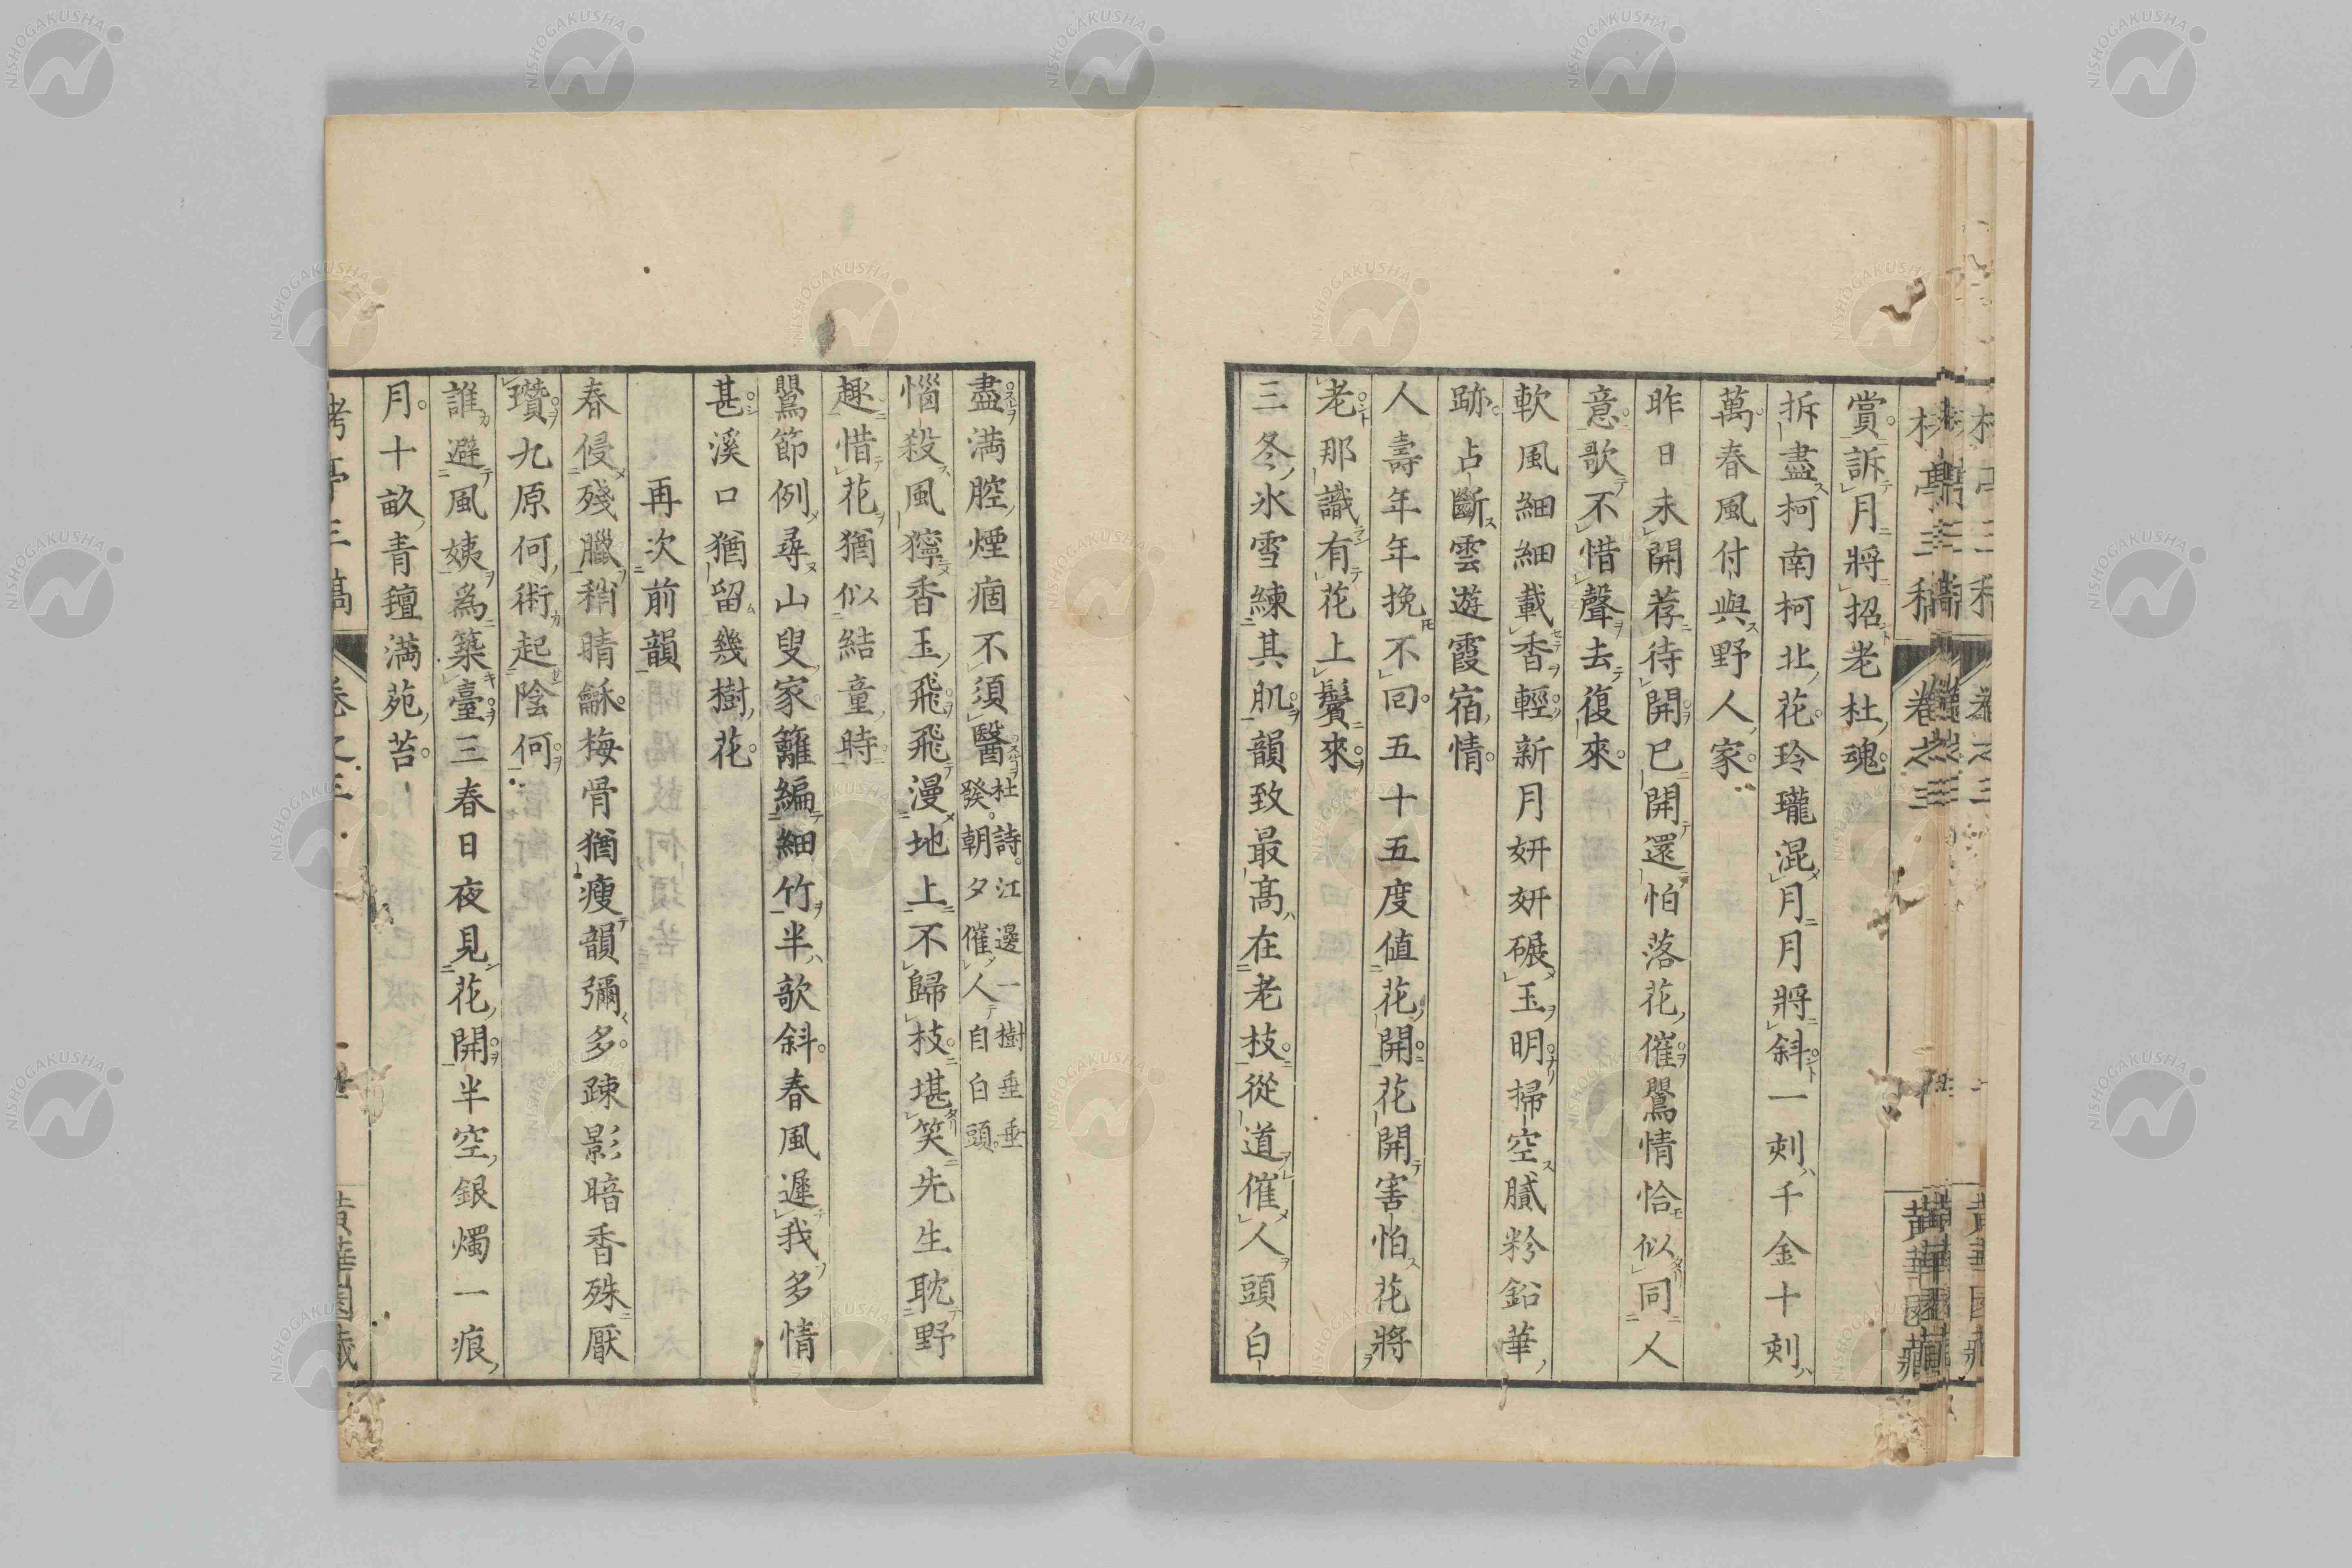 賞訴月將招老杜魂
拆盡柯南柯北花玲瓏混月月將斜一刻千金十刻
萬春風付與野人家
昨日未開荐待開已開還怕落花催鶯情恰似同人
意歌不惜聲去復來
軟風細細載香輕新月妍妍碾玉明掃空膩粉鉛華
跡占斷雲遊霞宿情
人壽年年挽不回五十五度値花開花開害怕花將
老那識有花上鬢來
三冬氷雪練其肌韻致最高在老枝從道催人頭白
盡満腔煙痼不須醫 杜詩江邊一樹垂垂
發朝夕催人自白頭
惱殺風獰香玉飛飛漫地上不歸枝堪笑先生耽野
趣惜花猶似結童時
鶯節例尋山叟家籬編細竹半欹斜春風遲我多情
甚溪口猶留幾樹花
再次前韻
春侵殘臘稍晴龢梅骨猶瘦韻彌多疎影暗香殊厭
瓚九原何術起陰何
誰避風姨爲築臺三春日夜見花開半空銀燭一痕
月十畝青氊満苑苔
亭三稿 卷之三 黄華園藏
NISHOGAKUSHA